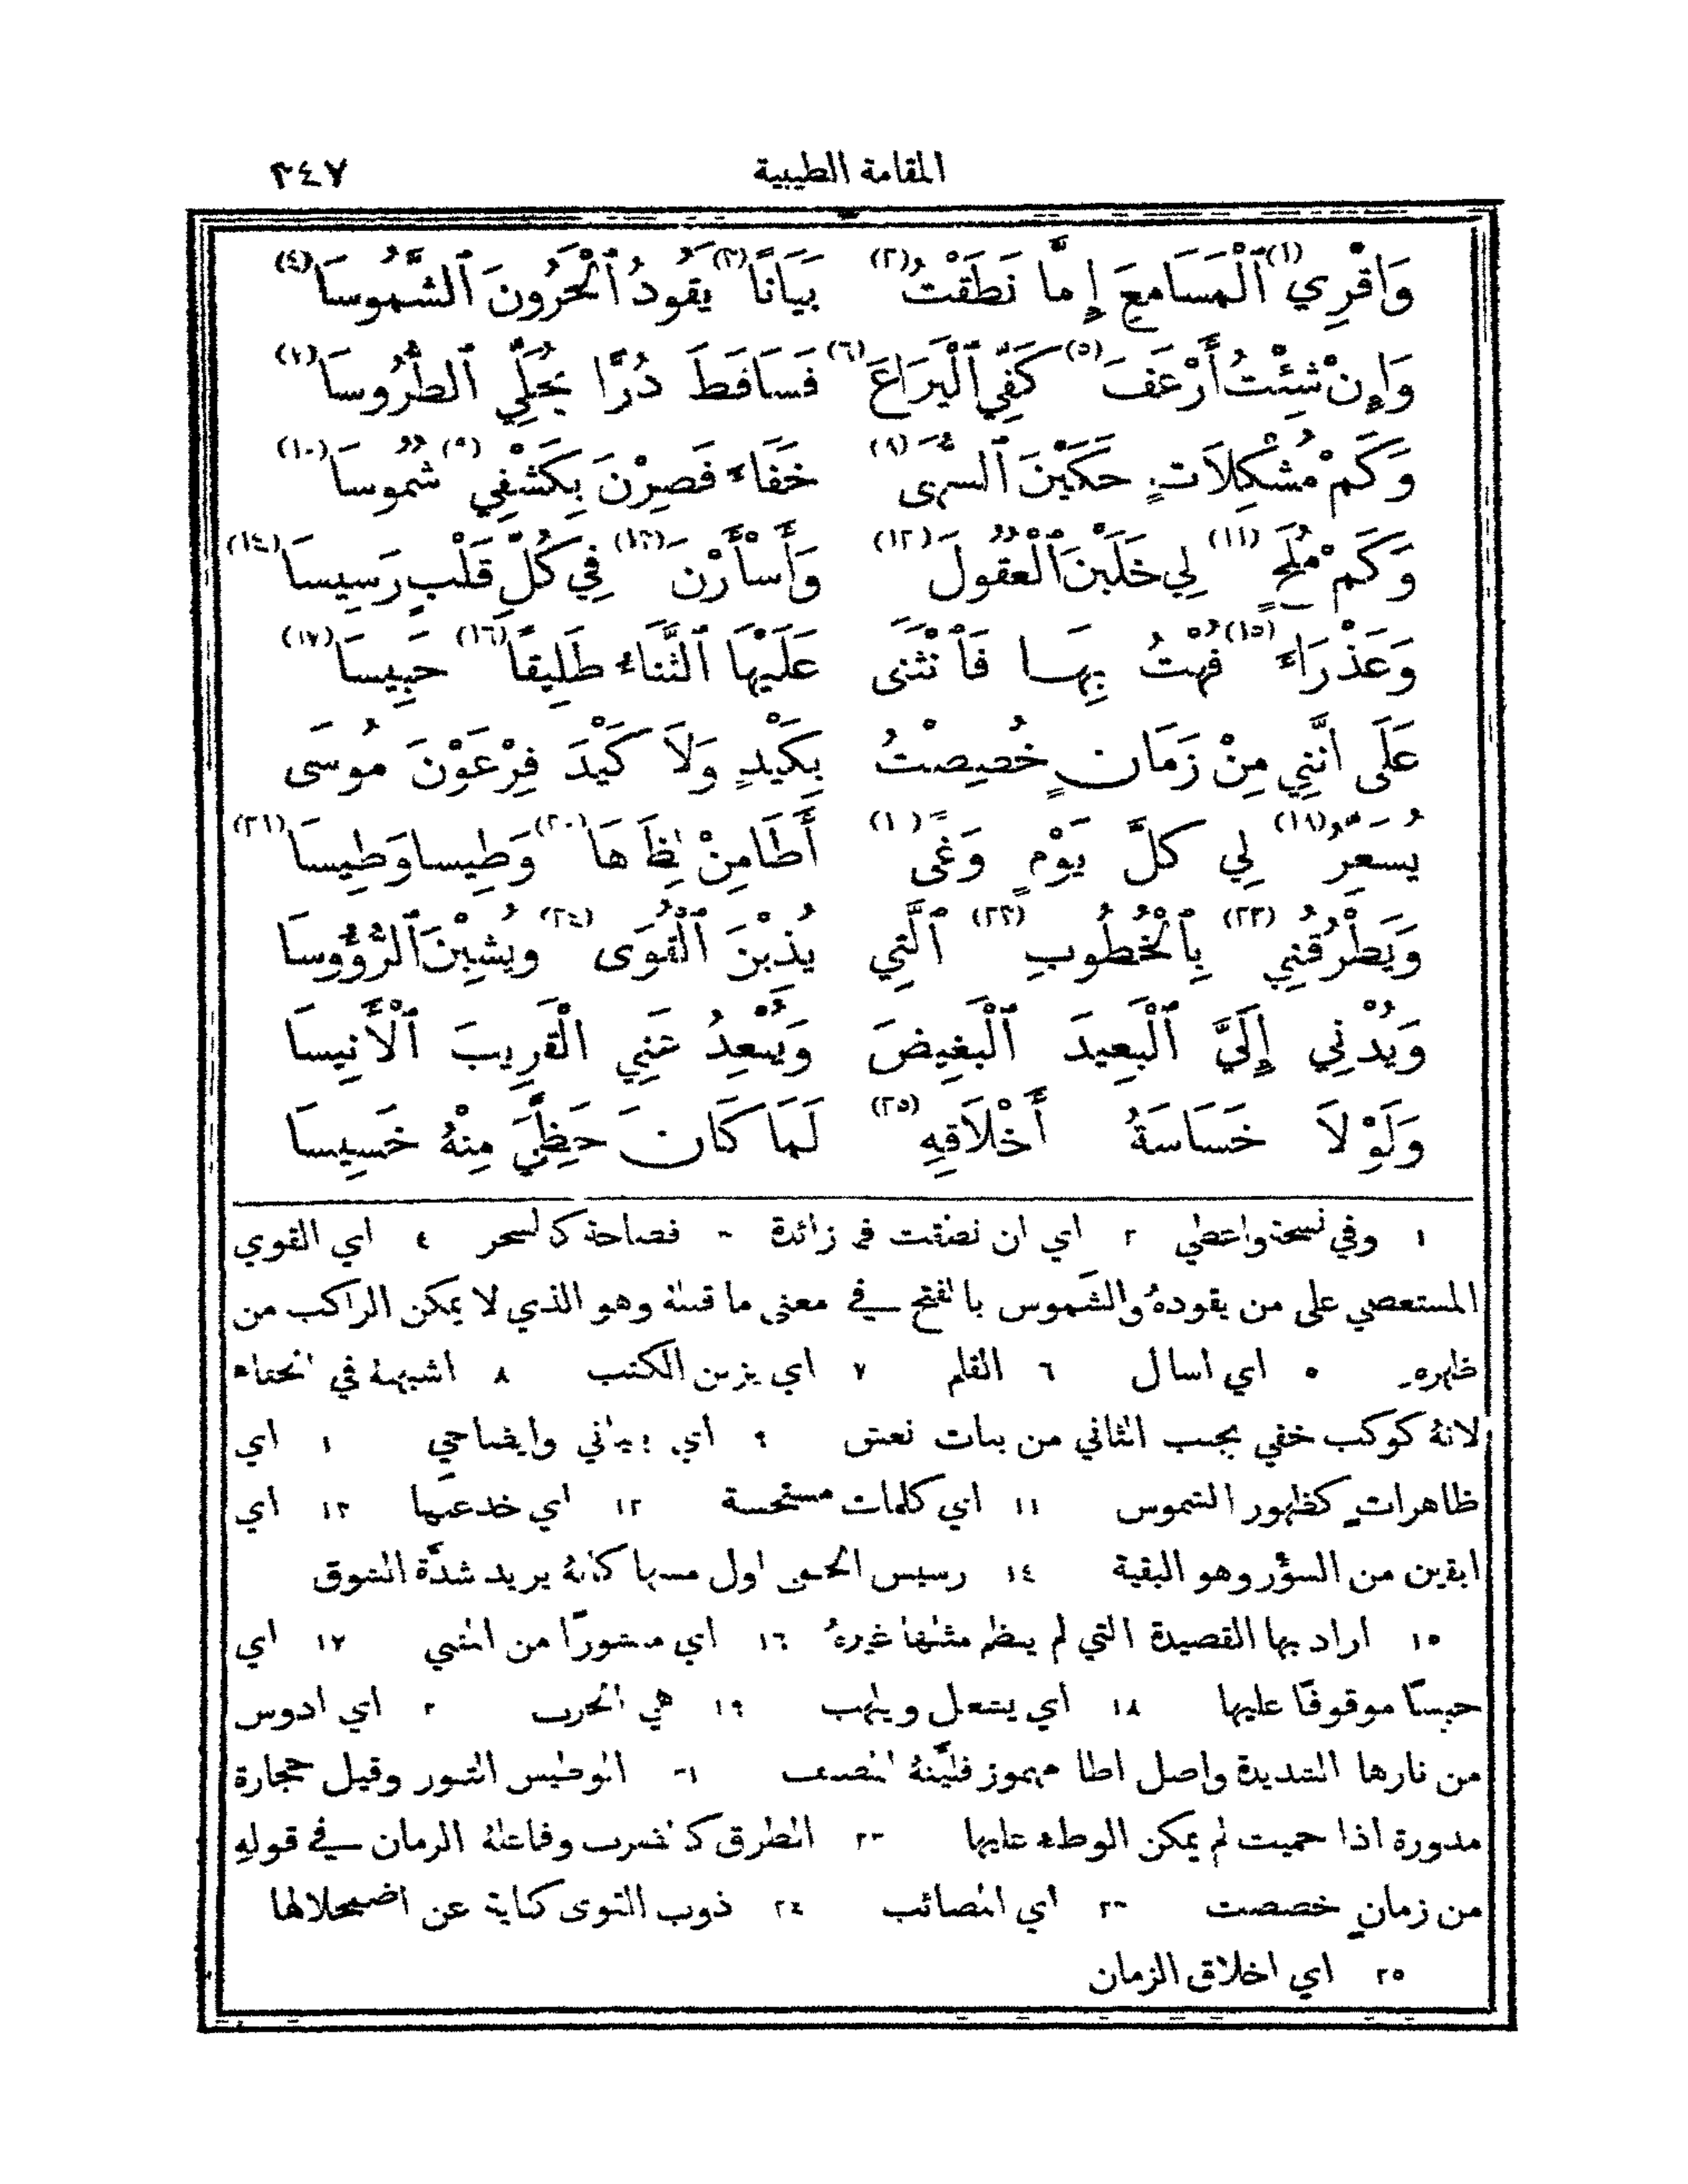 المقامة الطيبية ٢٤٧
وَأَقْرِي (١) ٱلْمَسَامِعَ إِمَّا نَطَقْتُ (٢) بَيَانًا (٣) يَقُودُ ٱلْحَرُونَ ٱلشَّمُوسَا (٤)
وَإِنْ شِئْتُ أَرْعَفَ (٥) كَفِّي ٱلْيَرَاعَ (٦) فَسَاقَطَ دُرًّا يُحَلِّي ٱلطُّرُوسَا (٧)
وَكَمْ مُشْكِلَاتٍ حَكَيْنَ ٱلسُّهَى (٨) خَفَاءً فَصِرْنَ بِكَشْفِي (٩) شُمُوسَا (١٠)
وَكَمْ مُلَحٍ (١١) لِي خَلَبْنَ ٱلْعُقُولَ (١٢) وَأَسْأَرْنَ (١٣) فِي كُلِّ قَلْبٍ رَسِيسَا (١٤)
وَعَذْرَاءَ (١٥) فُهْتُ بِهَا فَٱنْثَنَى عَلَيْهَا ٱلثَّنَاءُ طَلِيقًا (١٦) حَبِيسَا (١٧)
عَلَى أَنَّنِي مِنْ زَمَانٍ خُصِصْتُ بِكَيْدٍ وَلَا كَيْدَ فِرْعَوْنَ مُوسَى
يُسَعِّرُ (١٨) لِي كُلَّ يَوْمٍ وَغًى (١) أَطَا مِنْ لَظَاهَا (٢٠) وَطِيسا وَطِيسَا (٢١)
وَيَطْرُقُنِي (٢٢) بِٱلْخُطُوبِ (٢٣) ٱلَّتِي يُذِبْنَ ٱلْقُوَى (٢٤) وَيُشِبْنَ ٱلرُّؤُوسَا
وَيُدْنِي إِلَيَّ ٱلْبَعِيدَ ٱلْبَغِيضَ وَيُبْعِدُ عَنِّي ٱلْقَرِيبَ ٱلْأَنِيسَا
وَلَوْلَا خَسَاسَةُ أَخْلَاقِهِ (٢٥) لَمَا كَانَ حَظِّيَ مِنْهُ خَسِيسَا
١ وفي نسخة واعطي ٢ اي ان نطقت فما زائدة ٣ فصاحة كالسحر ٤ اي القوي
المستعصي على من يقودهُ والشَموس بالفتح في معنى ما قبلهُ وهو الذي لا يمكن الراكب من
ظهره ٥ اي اسال ٦ القلم ٧ اي يزين الكتب ٨ اشبهنهُ في الخفاء
لانهُ كوكب خفي بجنب الثاني من بنات نعش ٩ اي ببياني وايضاحي ١ اي
ظاهراتٍ كظهور الشموس ١١ اي كلمات مستحسنة ١٢ اي خدعنها ١٣ اي
ابقين من السؤر وهو البقية ١٤ رسيس الحمى اول مسها كانهُ يريد شدَّة الشوق
١٥ اراد بها القصيدة التي لم ينظم مثلها غيرهُ ١٦ اي منشورًا من المثني ١٧ اي
حبسًا موقوفًا عليها ١٨ اي يشعل ويلهب ١٩ هي الحرب ٢ اي ادوس
من نارها الشديدة واصل اطا مهموز فليَّنهُ المصنف ٢١ الوطيس التنور وقيل حجارة
مدورة اذا حميت لم يمكن الوطء عليها ٢٢ الطرق كالضرب وفاعلهُ الزمان في قولهِ
من زمانٍ خصصت ٢٣ اي المصائب ٢٤ ذوب القوى كناية عن اضمحلالها
٢٥ اي اخلاق الزمان